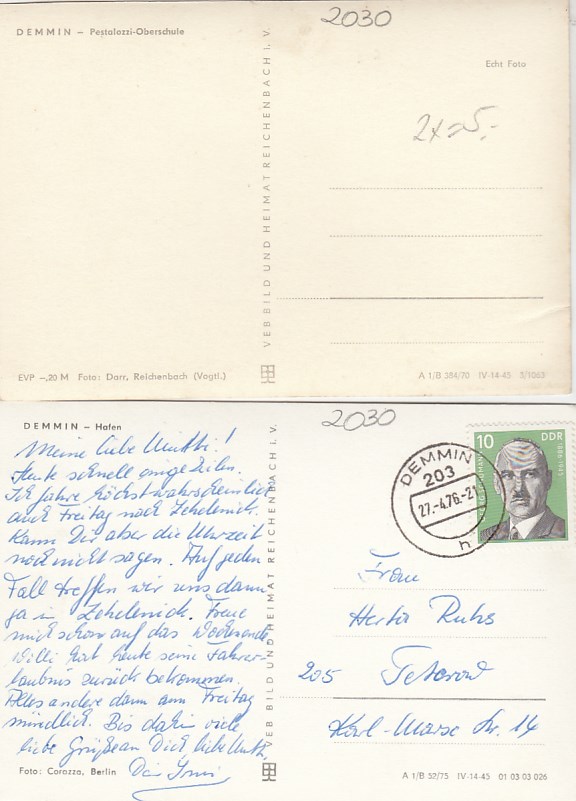 2030
DEMMIN – Pestalozzi-Oberschule
Echt Foto
2x=5,-
VEB BILD UND HEIMAT REICHENBACH I. V.
EVP –,20 M Foto: Darr, Reichenbach (Vogtl.)
A 1/B 384/70 IV-14-45 3/1063
2030
DEMMIN – Hafen
Meine liebe Mutti!
Heute schnell einige Zeilen.
Ich fahre höchstwahrscheinlich
auch Freitag nach Zehdenick.
Kann Dir aber die Uhrzeit
noch nicht sagen. Auf jeden
Fall treffen wir uns dann
ja in Zehdenick. Freue
mich schon auf das Wochenende.
Willi hat heute seine Fahrer-
laubnis zurück bekommen.
Alles andere dann am Freitag
mündlich. Bis dahin viele
liebe Grüße an Dich liebe Mutti,
VEB BILD UND HEIMAT REICHENBACH I. V.
10 DDR
DEMMIN
203
27.-4.76.-21
h
Frau
Herta
205 Teterow
Karl-Marx-Str. 14
Foto: Corazza, Berlin
A 1/B 52/75 IV-14-45 01 03 03 026